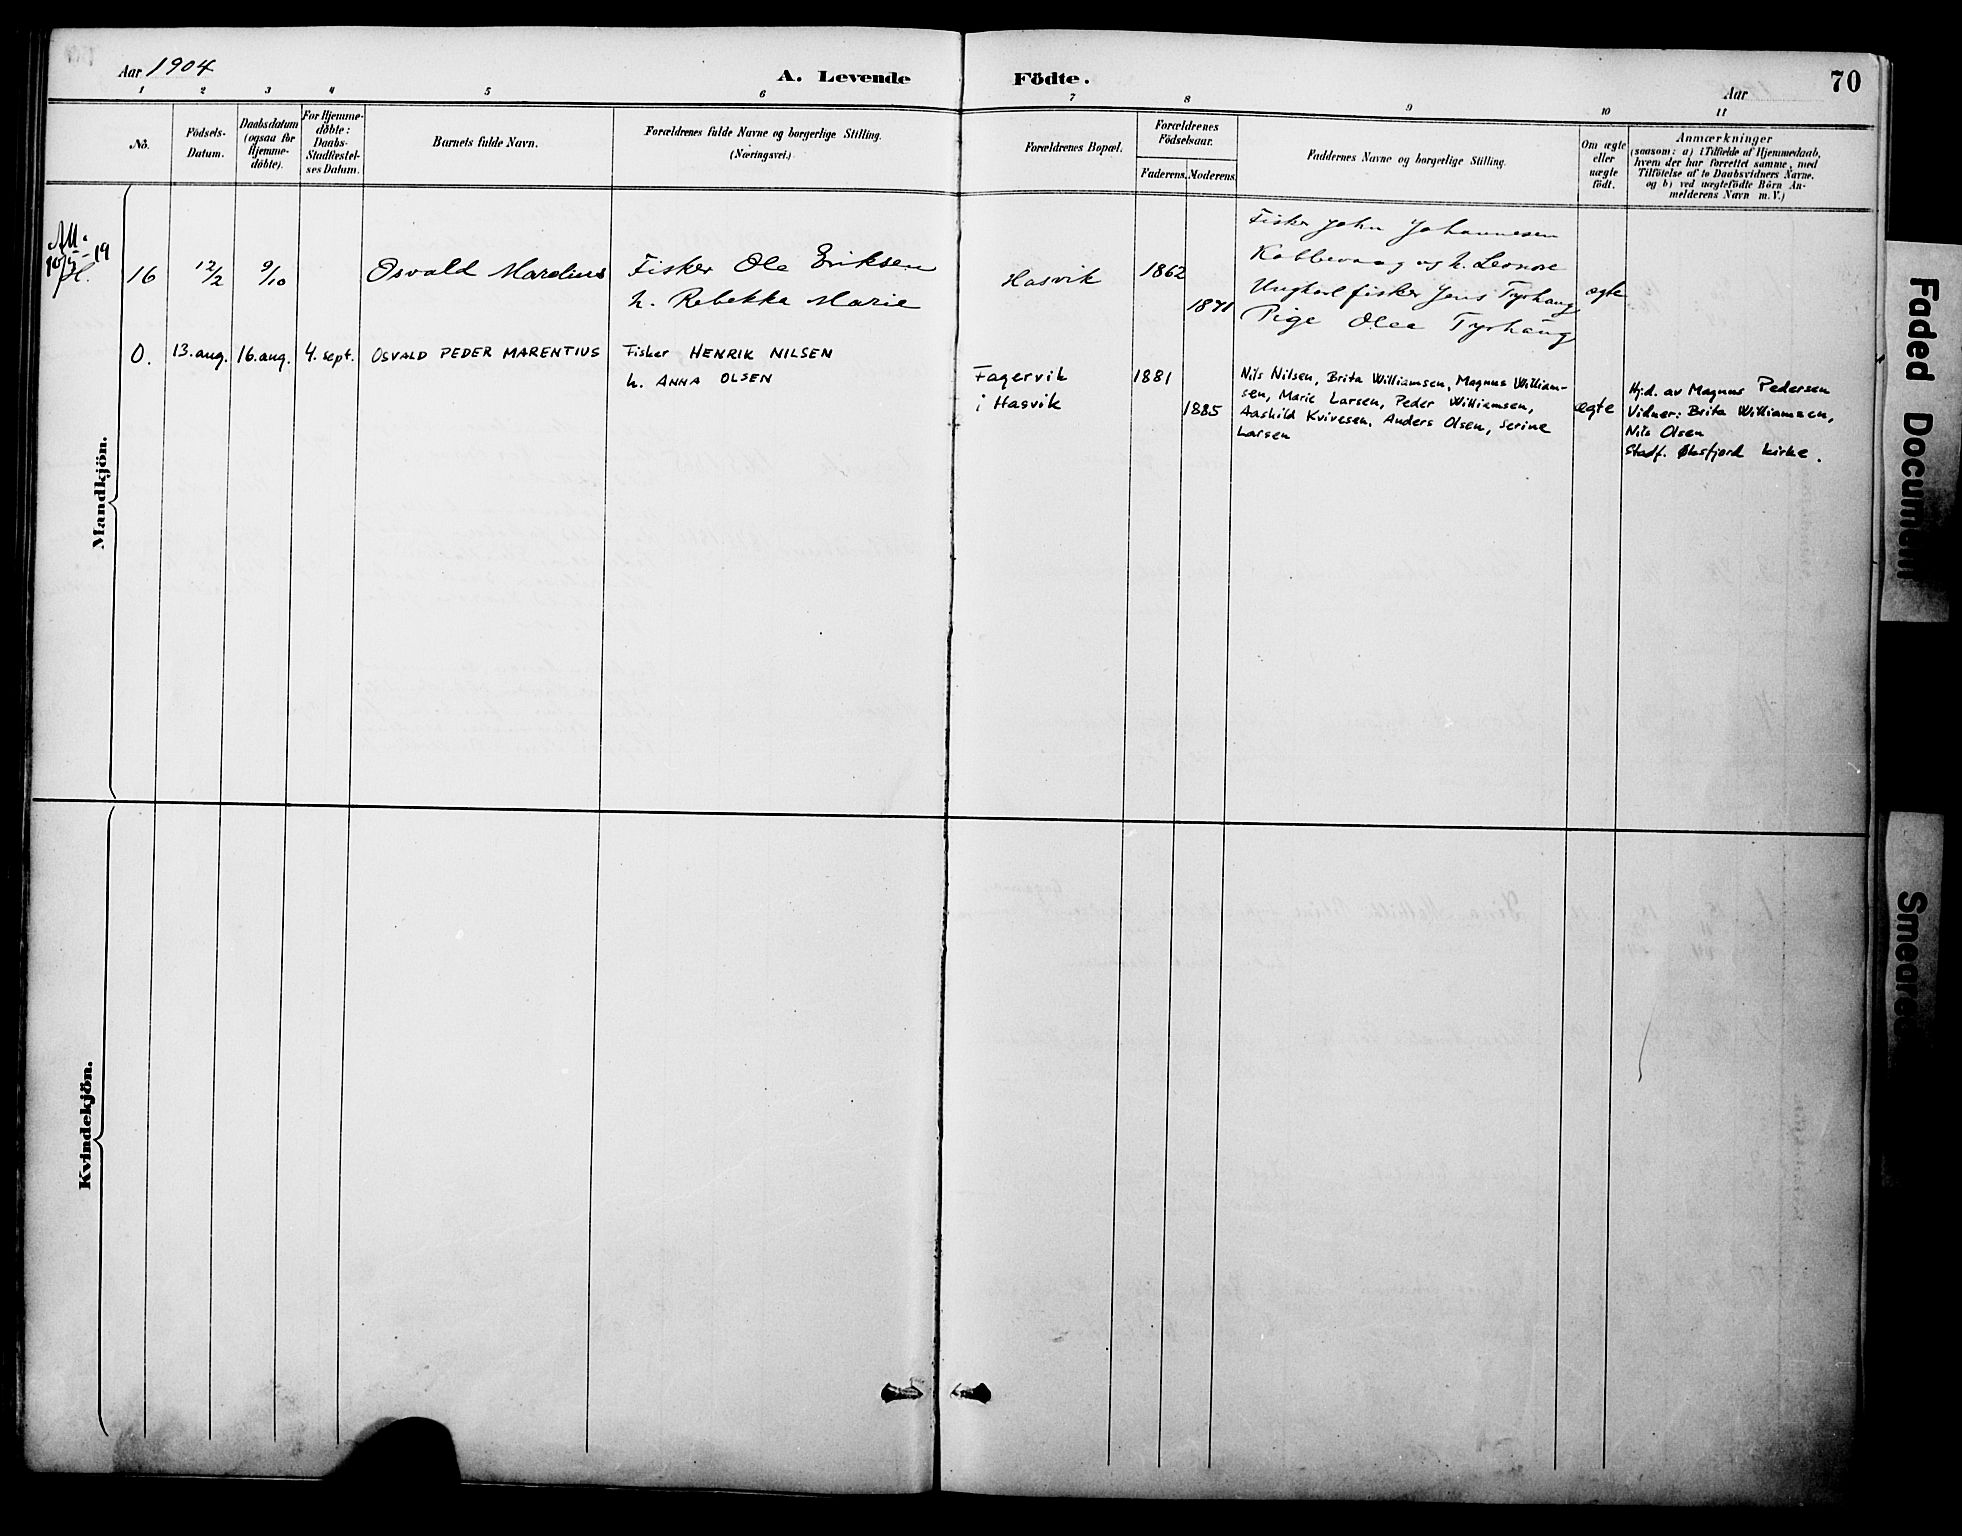 Aar 1904
A. Levende
Födte.
Aar
70
1 2 3 4 5 6 7 8 9 10 11
No.
Födsels-
Datum.
Daabsdatum
(ogsaa for
Hjemme-
döbte).
For Hjemme-
döbte:
Daabs-
Stadfæstel-
ses Datum.
Barnets fulde Navn.
Forældrenes fulde Navne og borgerlige Stilling.
(Næringsvei.)
Forældrenes Bopæl.
Forældrenes
Födselsaar.
Faderens. Moderens.
Faddernes Navne og borgerlige Stilling.
Om ægte
eller
uægte
födt.
Anmærkninger
(saasom: a) i Tilfælde af Hjemmedaab,
hvem der har forrettet samme, med
Tilföielse af to Daabsvidners Navne.
og b) ved uægtefödte Börn An-
melderens Navn m.V.)
Mandkjön.
16
12/2
9/10
Osvald Mardius
Fisker Ole Eriksen
h. Rebekka Marie
Hasvik
1862
1871
Fisker John Johannesen
Kobbervaag og h. Leonore
Ungkarl fisker Jens Tyrhaug
Pige Olea Tyrhaug
ægte
0.
13. aug.
16. aug.
4. sept.
OSVALD PEDER MARENTIUS
Fisker HENRIK NILSEN
h. ANNA OLSEN
Fagervik
i Hasvik
1881
1885
Nils Nilsen, Brita Williamsen, Magnus William-
sen, Marie Larsen, Peder Williamsen,
Aashild Kvivesen, Anders Olsen, Serine
Larsen
ægte
Hjd. av Magnus Pedersen
Vidner: Brita Williamsen,
Nils Olsen
Stadf. Øksfjord kirke.
Kvindekjön.
Faded Document
Smeared